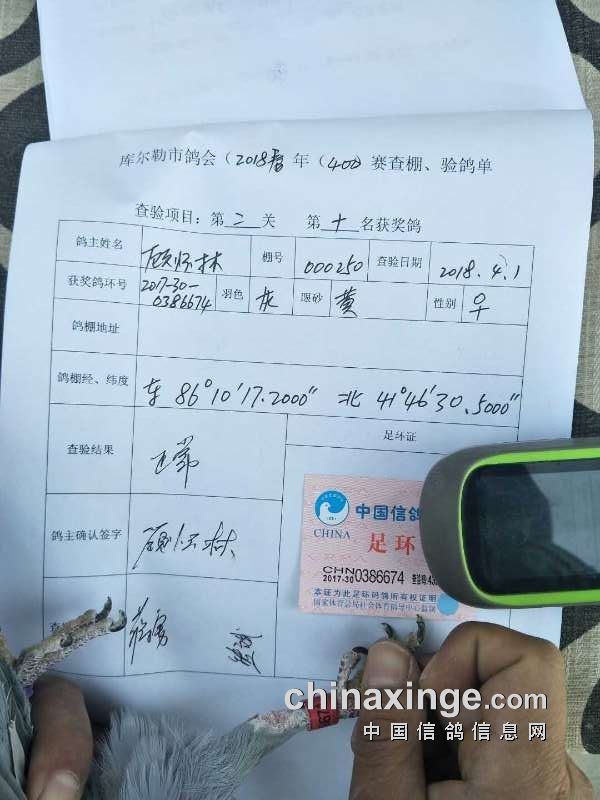 库尔勒市鸽会（2018春年（400）赛查棚、验鸽单
查验项目：第二关 第十名获奖鸽
鸽主姓名 顾怀林 棚号 000250 查验日期 2018.4.1
获奖鸽环号 2017-30-0386674 羽色 灰 眼砂 黄 性别 ♀
鸽棚地址
鸽棚经、纬度 东 86°10′17.2000″ 北 41°46′30.5000″
查验结果 正常
足环证
鸽主确认签字 顾怀林
中国信鸽
CHINA
足环
CHN
2017-30 0386674
本证为此足环码鸽所有权证明
国家体育总局社会体育指导中心监制
chinaxinge.com
中国信鸽信息网